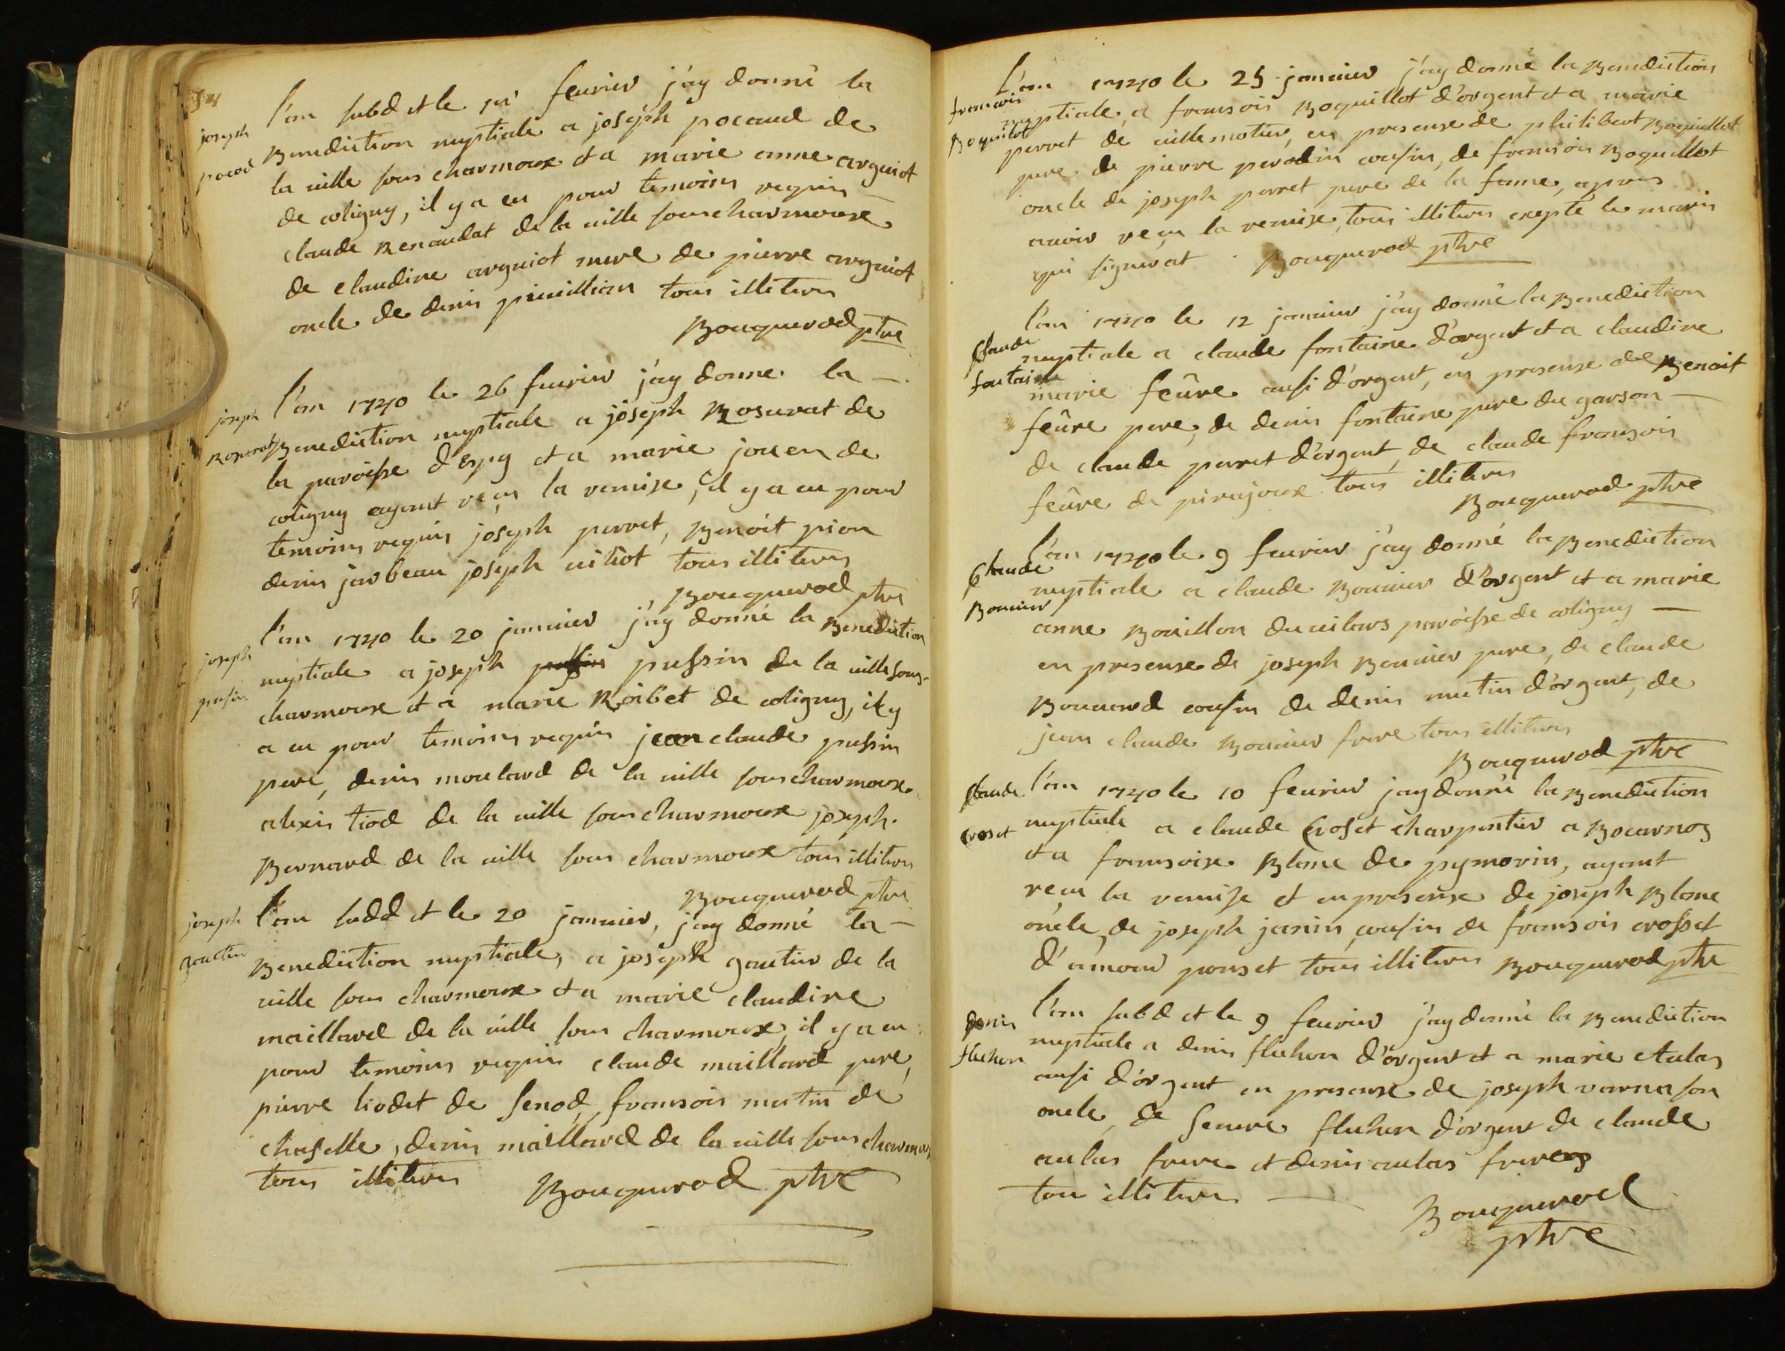 joseph
pocod
l'an subd et le 1er feurier j'ay donné la
Benediction nuptiale a joseph pocaud de
la uille sous charmoux et a marie anne arguiot
de coligny, il y a eu pour temoins requis
claude Renaudat de la uille sous charmoux
de claudine arguiot mere de pierre arguiot
oncle de denis tous illitires
Bouquerod ptre
joseph
Roserat
l'an 1740 le 26 feurier j'ay donne la
Benediction nuptiale a joseph Roserat de
la paroisse d'Espy et a marie jouen de
coligny ayant reçu la remise, il y a eu pour
temoins requis joseph perret, Benoit pion
denis jarbeau joseph uitiot tous illitires
Bouquerod ptre
joseph
pusin
l'an 1740 le 20 januier j'ay donné la Benediction
nuptiale a joseph pussin de la uille sous
charmoux et a marie Roibet de coligny, il y
a eu pour temoins requis jean claude pussin
pere, denis moulard de la uille sous charmoux
alexis tiod de la uille sous charmoux joseph
Bernard de la uille sous charmoux tous illitires
Bouquerod ptre
joseph
gautier
l'an subd et le 20 januier, j'ay donné la
Benediction nuptiale, a joseph gautier de la
uille sous charmoux et a marie claudine
maillard de la uille sous charmoux, il y a eu
pour temoins requis claude maillard pere,
pierre liodet de senod, fransois mutin de
chaselle, denis maillard de la uille sous charmoux
tous illitires Bouquerod ptre
fransois
Boquillot
l'an 1740 le 25 januier j'ay donné la Benediction
nuptiale, a fransois Boquillot d'orgent et a marie
perret de uillemotier, en presense de philibert Boquillot
pere de pierre perodin cousin, de fransois Boquillot
oncle de joseph perret pere de la fame, apres
auoir reçu la remise, tous illitires exepté le maris
qui signerat Bouquerod ptre
Claude
fontaine
l'an 1740 le 12 januier j'ay donné la Benediction
nuptiale a claude fontaine d'orgent et a claudine
marie feûre ausi d'orgent, en presense de Benoit
feûre pere, de denis fontaine pere du garson
de claude perret d'orgent, de claude fransois
feûre de pirajoux tous illitires
Bouquerod ptre
Claude
Bouuier
l'an 1740 le 9 feurier j'ay donné la Benediction
nuptiale a claude Bouuier d'orgent et a marie
anne Bouillon du uilars paroisse de coligny
en presense de joseph Bouuier pere, de claude
Bouuard cousin de denis mutin d'orgent, de
jean claude Bouuier frere tous illitires
Bouquerod ptre
Claude
Croset
l'an 1740 le 10 feurier j'ay donné la Benediction
nuptiale a claude Croset charpentier a Boucarnoz
et a fransoise Blanc de pymorin, ayant
reçu la remise et en presense de joseph Blanc
oncle, de joseph janin cousin de fransois crosset
d'amour ponset tous illitires Bouquerod ptre
denis
fluhen
l'an subd et le 9 feurier j'ay donné la Benediction
nuptiale a denis fluhen d'orgent et a marie Aulas
ausi d'orgent en presense de joseph varna son
oncle, de fluhen d'orgent de claude
aulas frere et denis aulas freres
tous illitires
Bouquerod
ptre